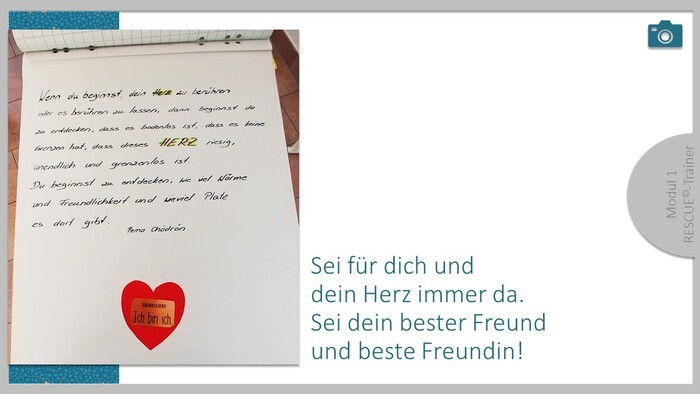 Wenn du beginnst, dein Herz zu berühren
oder es berühren zu lassen, dann beginnst du
zu entdecken, dass es bodenlos ist, dass es keine
Grenzen hat, dass dieses HERZ riesig,
unendlich und grenzenlos ist.
Du beginnst zu entdecken, wie viel Wärme
und Freundlichkeit und wieviel Platz
es dort gibt.
Pema Chödrön
SELBSTLIEBE
Ich bin ich.
Sei für dich und
dein Herz immer da.
Sei dein bester Freund
und beste Freundin!
Modul 1
RESCUE©-Trainer